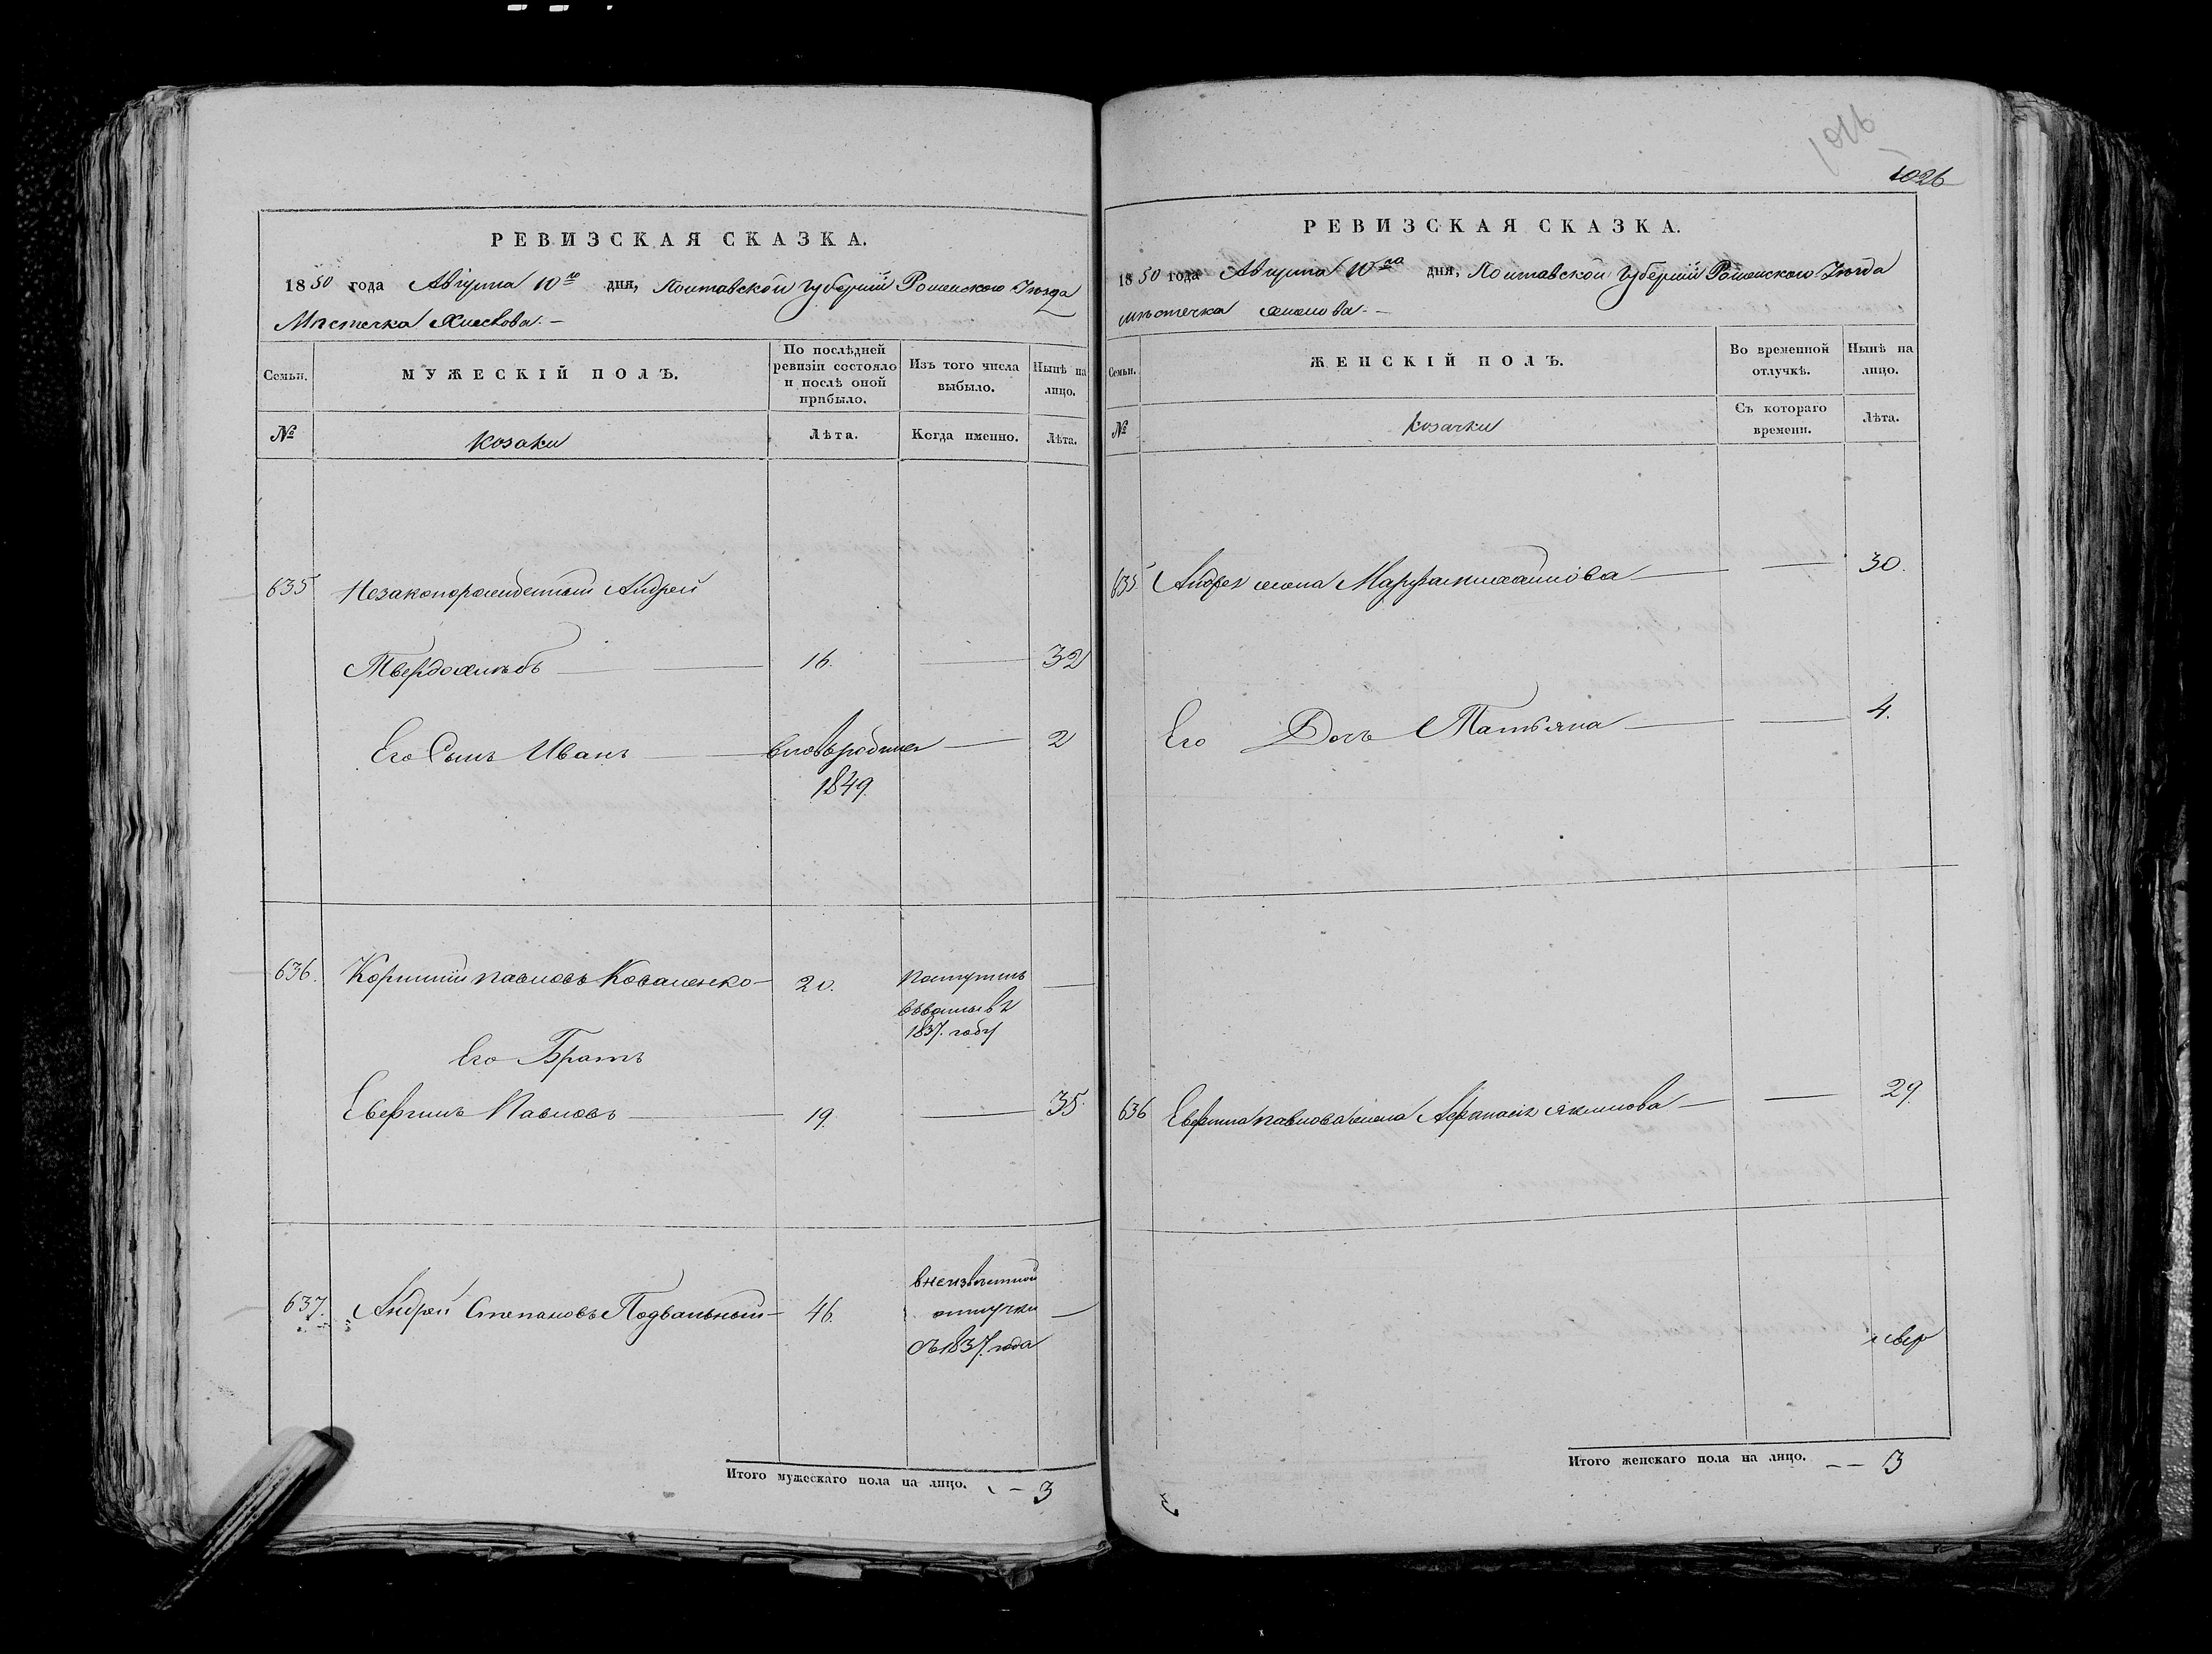 РЕВИЗСКАЯ СКАЗКА.
1850 года Августа 10го дня, Полтавской Губернiи Роменского Уезда
Мѣстечка Хмелова. –
Семьи.
МУЖЕСКІЙ ПОЛЪ.
По послѣдней ревизіи состояло и послѣ оной прибыло.
Изъ того числа выбыло.
Нынѣ на лицо.
№
козаки
Лѣта.
Когда именно.
Лѣта.
635 Незаконорожденный Андрей
Твердохлѣбъ 16. 32
Его Сынъ Иванъ вновьродился 2
1849.
636. Корнилій Павловъ Коваленко 20.
1837. году
Его Братъ
Павловъ 19. 35.
637. Андрей Степановъ Подвальный 46. внеизвестной
отлучки
съ 1837. года
Итого мужескаго пола на лицо. 3
1016
1026
РЕВИЗСКАЯ СКАЗКА.
1850 года Августа 10го дня, Полтавской Губернiи Роменского Уезда
мѣстечка Хмелова. –
Семьи.
ЖЕНСКІЙ ПОЛЪ.
Во временной отлучкѣ.
Нынѣ на лицо.
№
козачки
Съ котораго времени.
Лѣта.
635. Андрея жена Марфа михайлова 30.
Его Дочь Татьяна 4.
636 павлова жена Акимова 29
Итого женскаго пола на лицо. 3